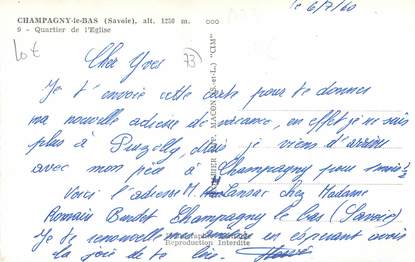 le 6/7/60
CHAMPAGNY-le-BAS (Savoie), alt. 1250 m.
9 - Quartier de l'Eglise
73
Cher Yves
Je t'envoie cette carte pour te donner
ma nouvelle adresse de vacance, en effet je ne suis
plus à mais je viens d'arriver
avec mon père à Champagny pour
Voici l'adresse M. Lansar chez Madame
Romain Champagny le bas (Savoie)
Je te renouvelle mes en espérant avoir
la joie de te lire.
Reproduction Interdite
MACON (S-et-L.) "CIM"